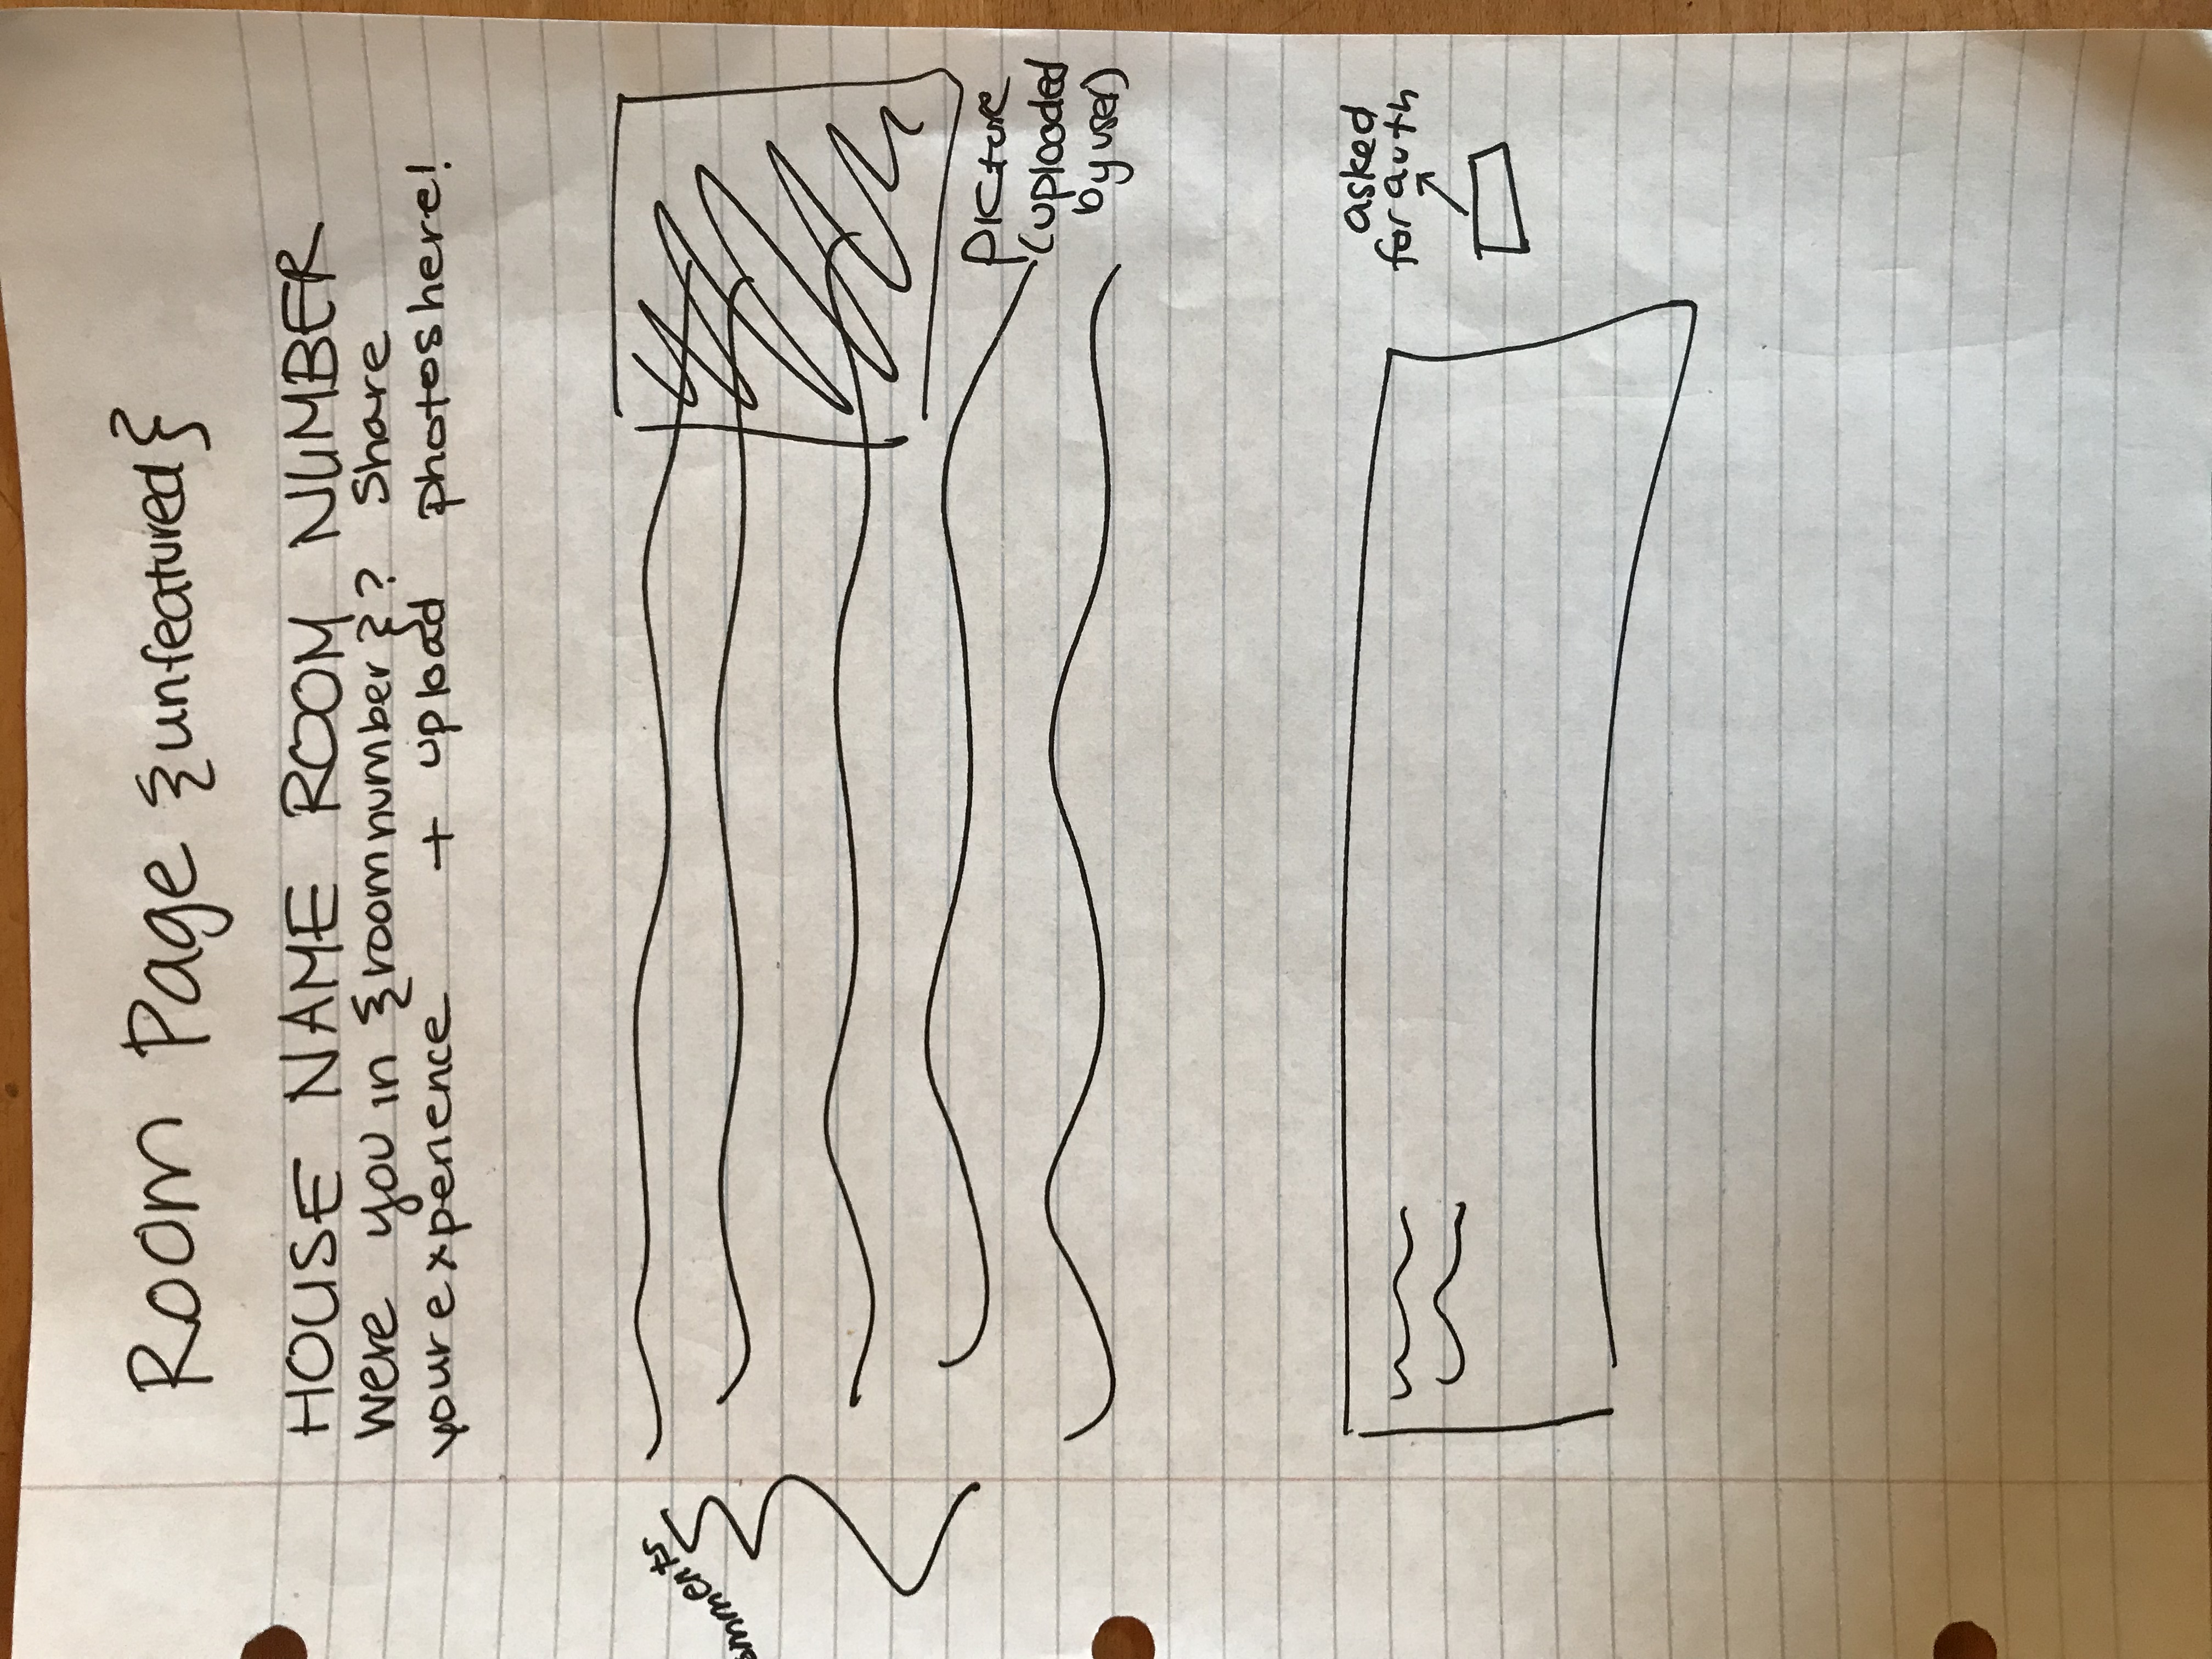 Room Page {unfeatured}
HOUSE NAME ROOM NUMBER
Were you in {roomnumber}? Share
your experience + upload photos here!
omments
picture
(uplooded
by user)
asked
for auth